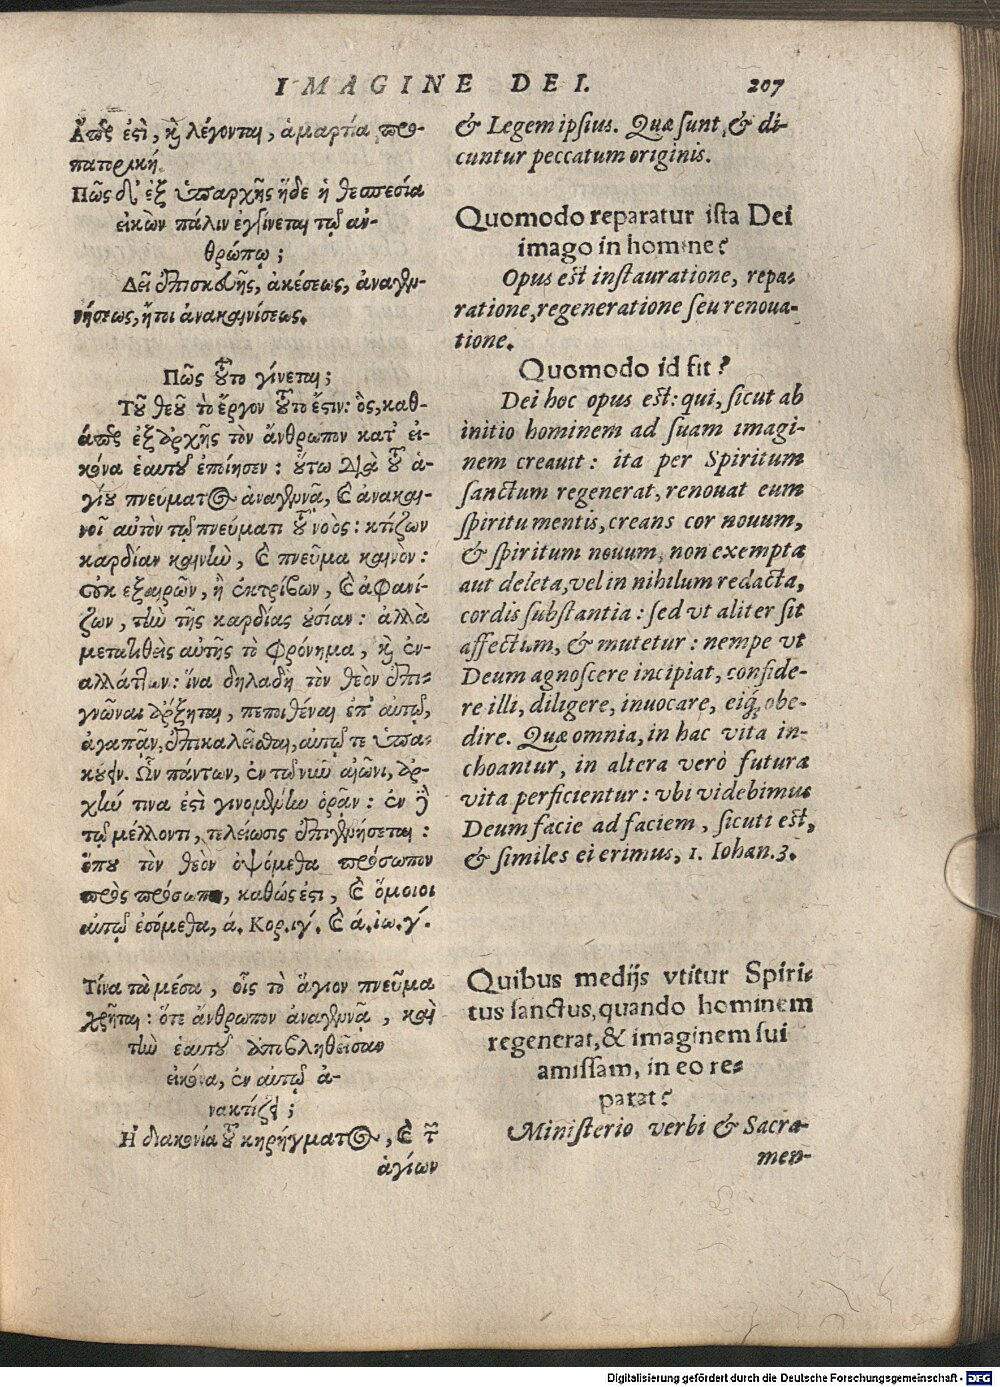 IMAGINE DEI. 207
ἅπερ ἐστὶ, καὶ λέγονται, ἁμαρτία προ-
πατορική.
Πῶς δ' ἐξ ὑπαρχῆς ἥδε ἡ θεσπεσία
εἰκὼν πάλιν ἐγγίνεται τῷ ἀν-
θρώπῳ;
Δεῖ ἐπισκευῆς, ἀκέσεως, ἀναγεν-
νήσεως, ἤτοι ἀνακαινίσεως.
Πῶς τοῦτο γίνεται;
Τοῦ θεοῦ τὸ ἔργον τοῦτο ἔστιν: ὃς, καθ-
άπερ ἐξ ἀρχῆς τὸν ἄνθρωπον κατ' εἰ-
κόνα ἑαυτοῦ ἐποίησεν: οὕτω διὰ τοῦ ἁ-
γίου πνεύματος ἀναγεννᾷ, καὶ ἀνακαι-
νοῖ αὐτὸν τῷ πνεύματι τοῦ νοός: κτίζων
καρδίαν καινὴν, καὶ πνεῦμα καινὸν:
οὐκ ἐξαιρῶν, ἢ ἐκτρίβων, καὶ ἀφανί-
ζων, τὴν τῆς καρδίας οὐσίαν: ἀλλὰ
μετατιθεὶς αὐτῆς τὸ φρόνημα, καὶ ἐν-
αλλάττων: ἵνα δηλαδὴ τὸν θεὸν ἐπι-
γνῶναι ἄρξηται, πεποιθέναι ἐπ' αὐτῷ,
ἀγαπᾶν, ἐπικαλεῖσθαι, αὐτῷ τε ὑπα-
κούειν. Ὧν πάντων, ἐν τῷ νῦν αἰῶνι, ἀρ-
χήν τινα ἐστὶ γινομένην ὁρᾶν: ἐν δὲ
τῷ μέλλοντι, τελείωσις ἐπιγενήσεται:
ὅπου τὸν θεὸν ὀψόμεθα πρόσωπον
πρὸς πρόσωπον, καθώς ἐστι, καὶ ὅμοιοι
αὐτῷ ἐσόμεθα, ά. Κορ. ιγ'. καὶ ά. ἰω. γ'.
Τίνα τὰ μέσα, οἷς τὸ ἅγιον πνεῦμα
χρῆται: ὅτε ἄνθρωπον ἀναγεννᾷ, καὶ
τὴν ἑαυτοῦ ἀποβληθεῖσαν
εἰκόνα, ἐν αὐτῷ ἀ-
νακτίζει;
Ἡ διακονία τοῦ κηρύγματος, καὶ τῶν
ἁγίων
& Legem ipsius. Quæ sunt, & di-
cuntur peccatum originis.
Quomodo reparatur ista Dei
imago in homine?
Opus est instauratione, repa-
ratione, regeneratione seu renoua-
tione.
Quomodo id fit?
Dei hoc opus est: qui, sicut ab
initio hominem ad suam imagi-
nem creauit: ita per Spiritum
sanctum regenerat, renouat eum
spiritu mentis, creans cor nouum,
& spiritum nouum, non exempta
aut deleta, vel in nihilum redacta,
cordis substantia: sed vt aliter sit
affectum, & mutetur: nempe vt
Deum agnoscere incipiat, confide-
re illi, diligere, inuocare, eiq́; obe-
dire. Quæ omnia, in hac vita in-
choantur, in altera verò futura
vita perficientur: vbi videbimus
Deum facie ad faciem, sicuti est,
& similes ei erimus, 1. Iohan. 3.
Quibus medijs vtitur Spiri-
tus sanctus, quando hominem
regenerat, & imaginem sui
amissam, in eo re-
parat?
Ministerio verbi & Sacra-
men-
Digitalisierung gefördert durch die Deutsche Forschungsgemeinschaft - DFG